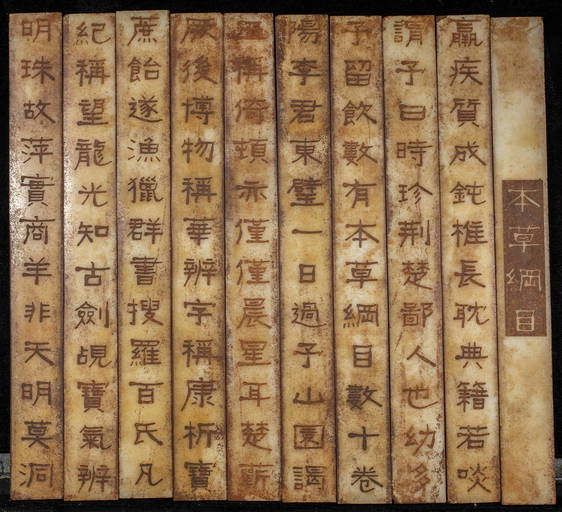 本草綱目
羸疾質成鈍椎長耽典籍若啖
謂予曰時珍荊楚鄙人也幼多
予留飲數有本草綱目數十卷
陽李君東璧一日過予山園謁
稱倚頓亦僅僅晨星耳楚蘄
厥後博物稱華辨字稱康析寶
蔗飴遂漁獵群書搜羅百氏凡
紀稱望龍光知古劍覘寶氣辨
明珠故萍實商羊非天明莫洞